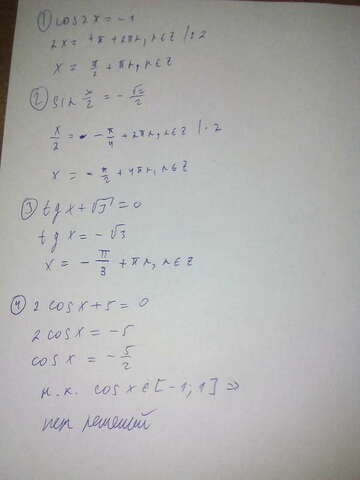 1) cos2x = -1
2x = π + 2πn, n∈Z /:2
x = π/2 + πn, n∈Z
2) sin x/2 = -√2/2
x/2 = -π/4 + 2πn, n∈Z /·2
x = -π/2 + 4πn, n∈Z
3) tg x + √3 = 0
tg x = -√3
x = -π/3 + πn, n∈Z
4) 2 cos x + 5 = 0
2 cos x = -5
cos x = -5/2
т.к. cos x ∈ [-1; 1] ⇒
нет решений